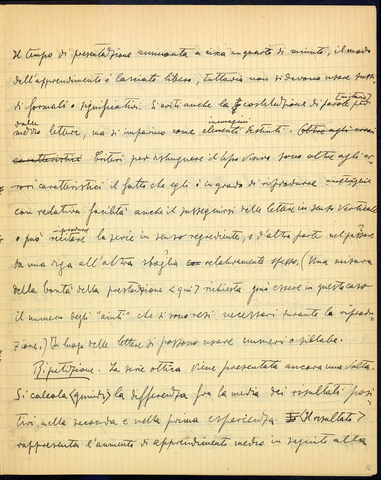 Il tempo di presentazione ammonta a circa un quarto di minuto, il modo
dell'apprendimento è lasciato libero, tuttavia non si devono usare
di formati o significativi. Si eviti anche la costruzione di parole
lettere, ma si imparino come elementi distinti. Oltre agli errori
immagini
caratteristici Criteri per distinguere il tipo visivo sono oltre agli er-
rori caratteristici il fatto che egli è in grado di riprodurre
con relativa facilità anche il susseguirsi delle lettere in senso verticale
riprodurre
o può recitare la serie in senso regrediente, e d'altra parte nel passare
da una riga all'altra sbaglia relativamente spesso. (Una misura
della bontà della prestazione <qui> richiesta può essere in questo caso
il numero degli "aiuti" che si sono resi necessari durante la riprodu-
zione.) In luogo delle lettere si possono usare numeri o sillabe.
Ripetizione. La serie ottica viene presentata ancora una volta.
Si calcola <quindi> la differenza fra la media dei risultati posi-
tivi nella seconda e nella prima esperienza. <Il risultato>
rappresenta l'aumento di apprendimento medio in seguito alla